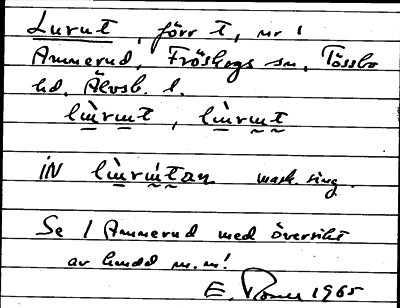 Lurut, förr t, nr 1
Ammerud, Fröskogs sn, Tössbo
hd, Älvsb. l.
lùrut, lùrut
IN lùrutan mask. sing.
Se 1 Ammerud med översikt
av hundd m.m!
E. 1965